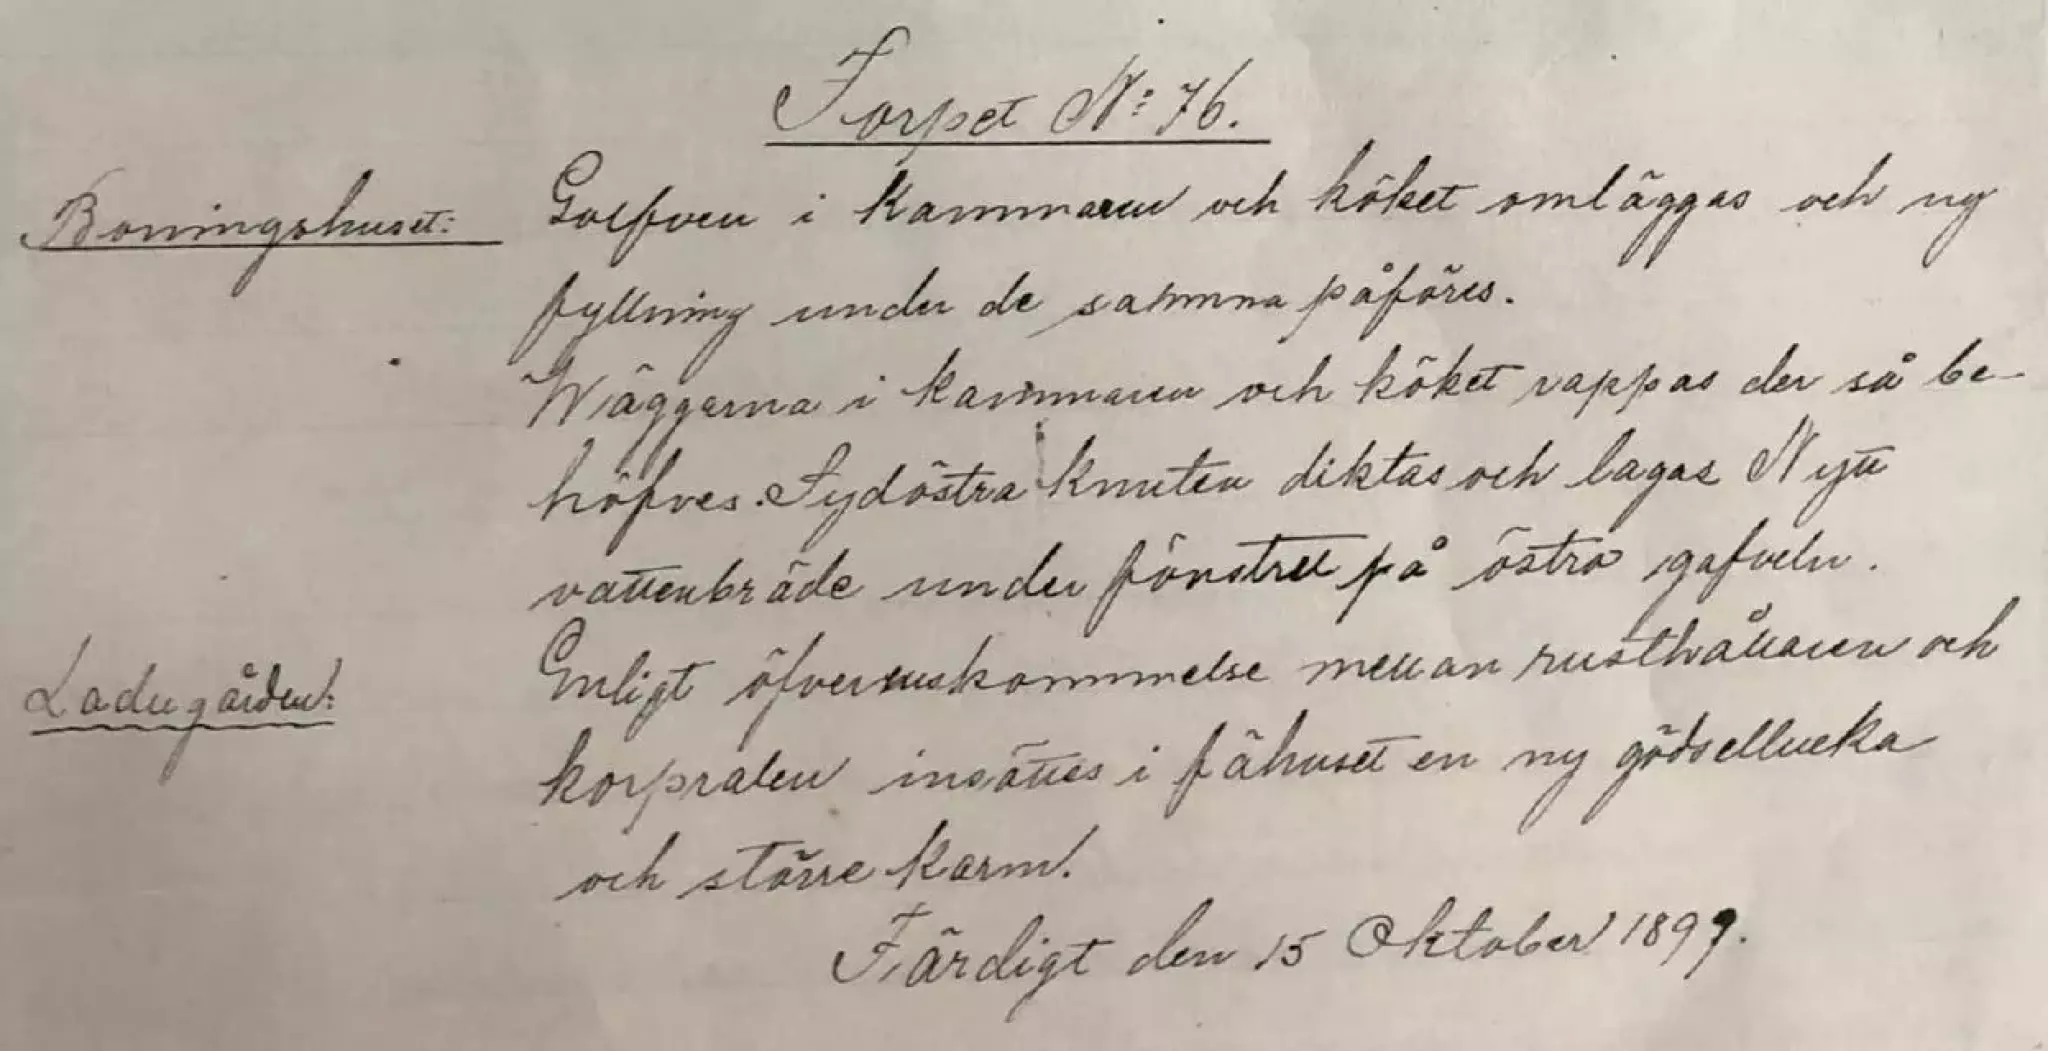 Torpet No: 76.
Boningshuset: Golfven i Kammaren och köket omläggas och ny
fyllning under de samma påföres.
Wäggarna i Kammaren och köket rappas der så be-
höfves. Sydöstra Knuten diktas och lagas Nytt
vattenbräde under fönstret på östra gafveln.
Ladugården: Enligt öfverenskommelse mellan rusthållaren och
korpralen insättes i fähuset en ny gödsellucka
och större Karm.
Färdigt den 15 Oktober 1899.